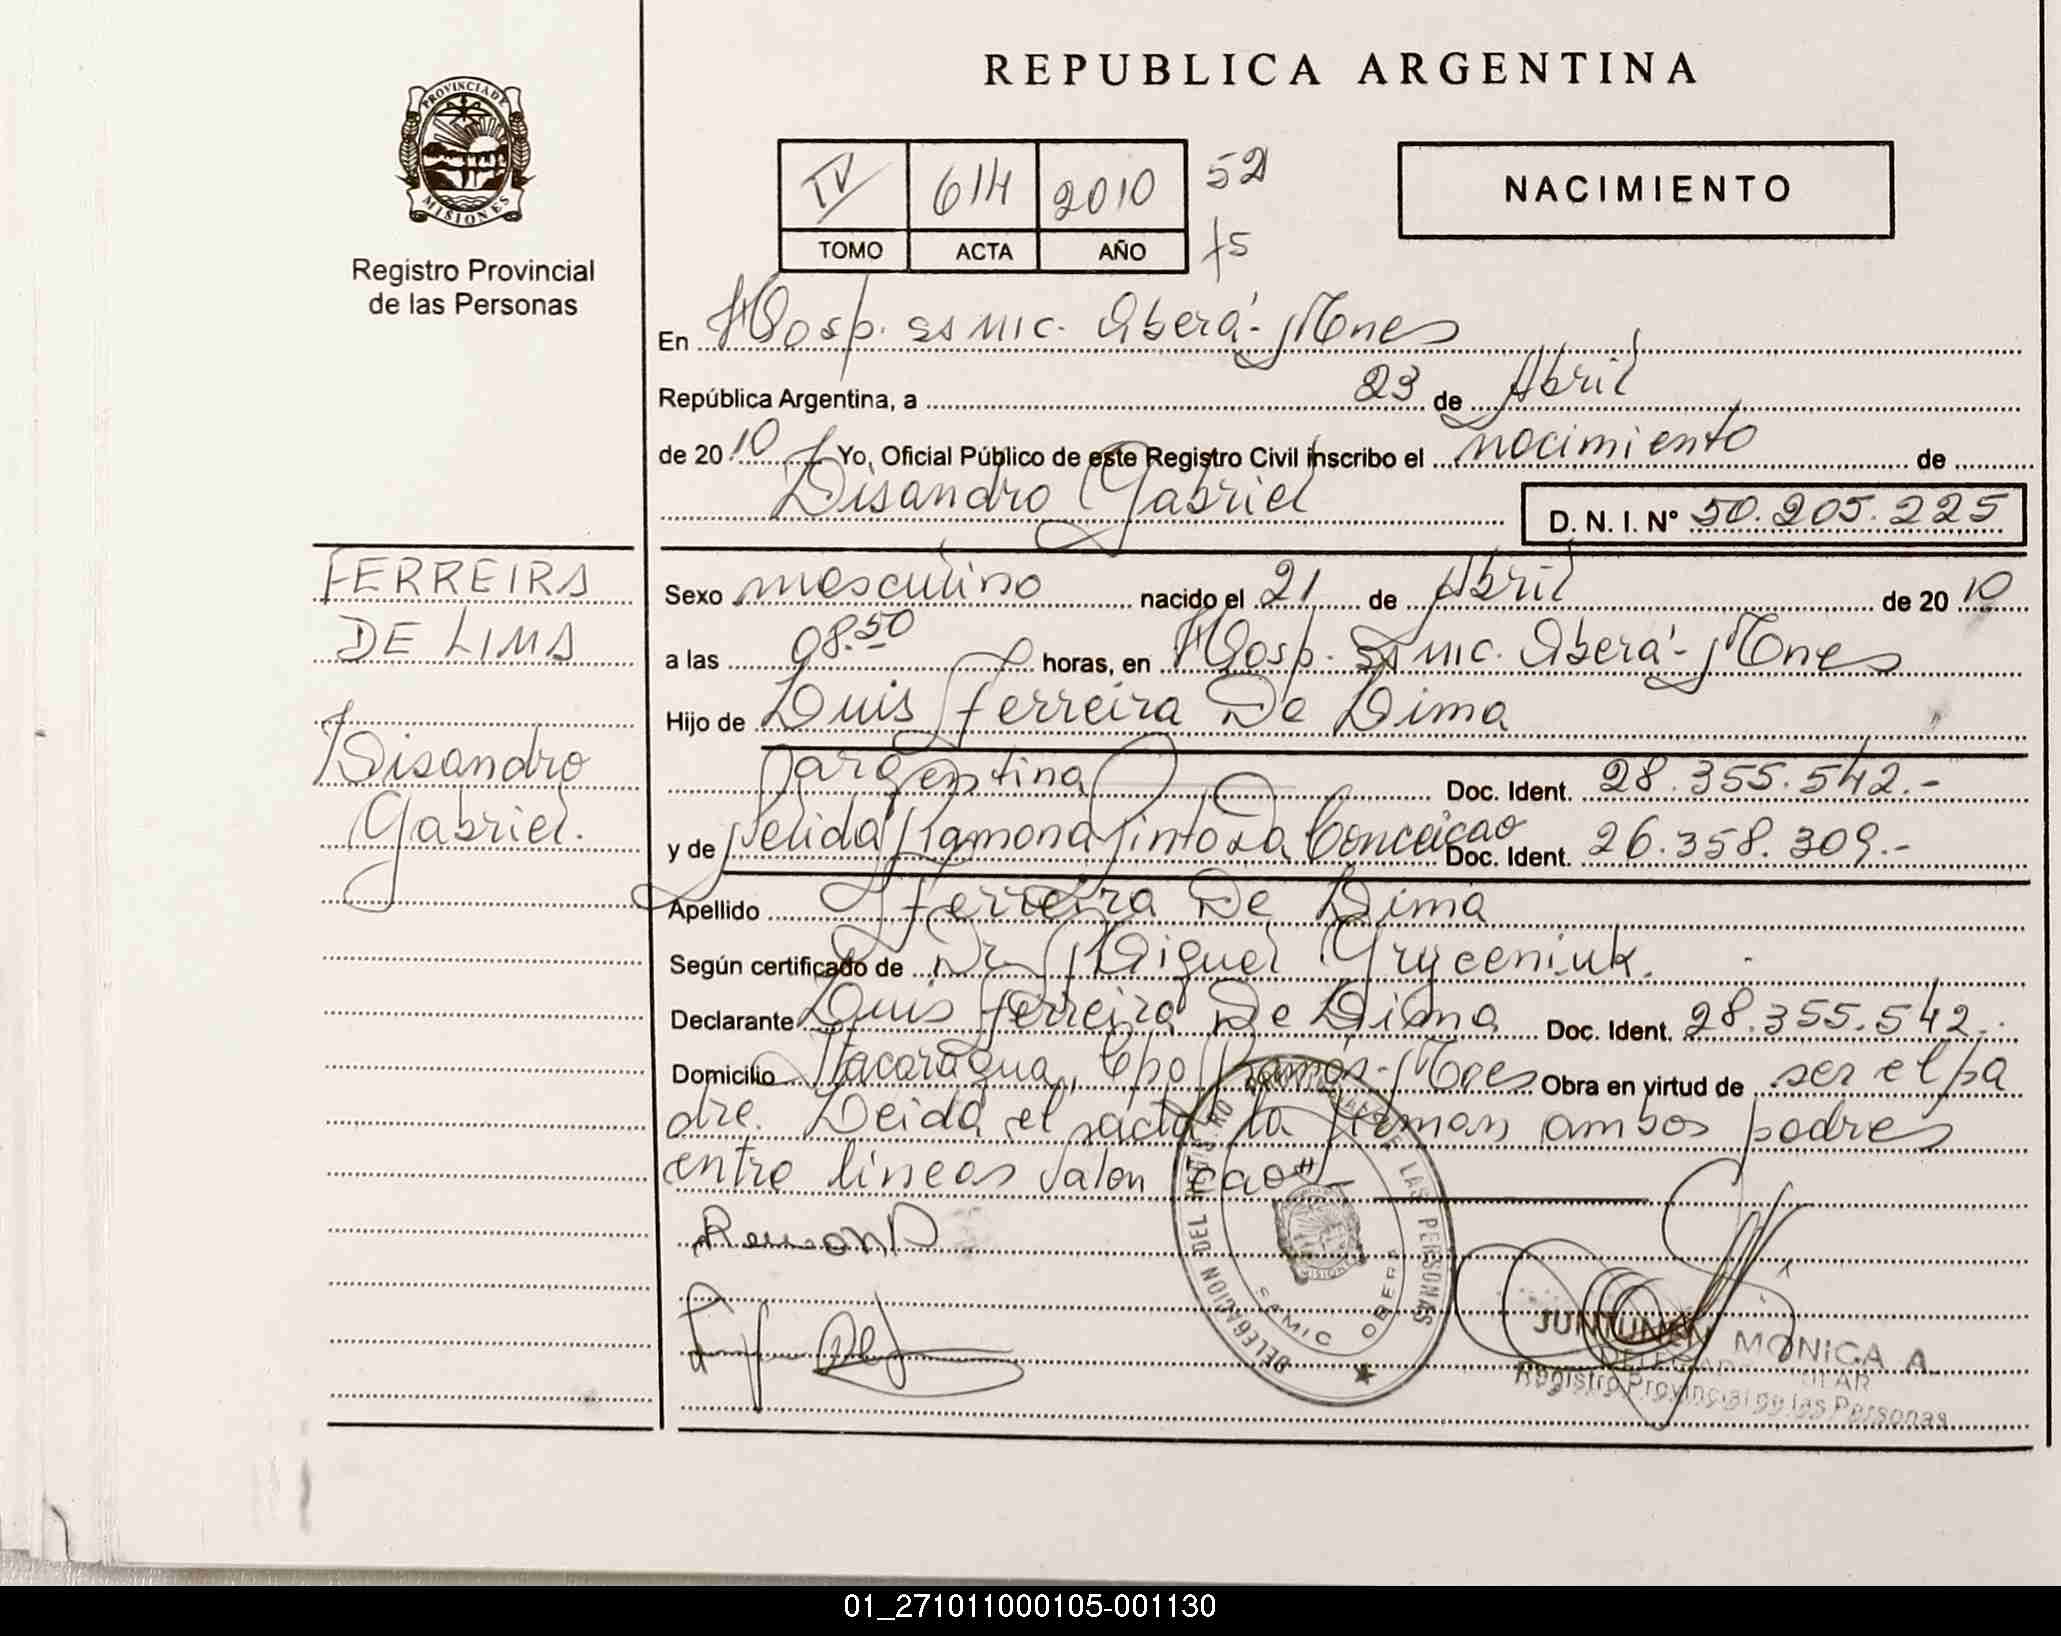 REPUBLICA ARGENTINA
PROVINCIA DE
MISIONES
Registro Provincial
de las Personas
IV 614 2010 52
TOMO ACTA AÑO 75
NACIMIENTO
En Hosp. SAMIC. Oberá - Mnes
República Argentina, a 23 de Abril
de 20 10 Yo, Oficial Público de este Registro Civil inscribo el nacimiento de
Lisandro Gabriel D. N. I. N° 50.205.225
FERREIRA
DE LIMA
Lisandro
Gabriel.
Sexo masculino nacido el 21 de Abril de 20 10
a las 08.50 horas, en Hosp. SAMIC. Oberá - Mnes
Hijo de Luis Ferreira De Lima
argentina Doc. Ident. 28.355.542.-
y de Nelida Ramona Pinto Da Conceicao Doc. Ident. 26.358.309.-
Apellido Ferreira De Lima
Según certificado de Dr. Miguel Gryceniuk.
Declarante Luis Ferreira De Lima Doc. Ident. 28.355.542.-
Domicilio Panambi Obra en virtud de ser el pa
dre. Leida el acta la firman ambos padres
entre lineas valen "cao" -
Ramona
DELEGACION DEL REGISTRO PROVINCIAL DE LAS PERSONAS
MISIONES
SAMIC OBERA
JUNTUNEN MONICA A.
DELEGADA TITULAR
Registro Provincial de las Personas
01_271011000105-001130